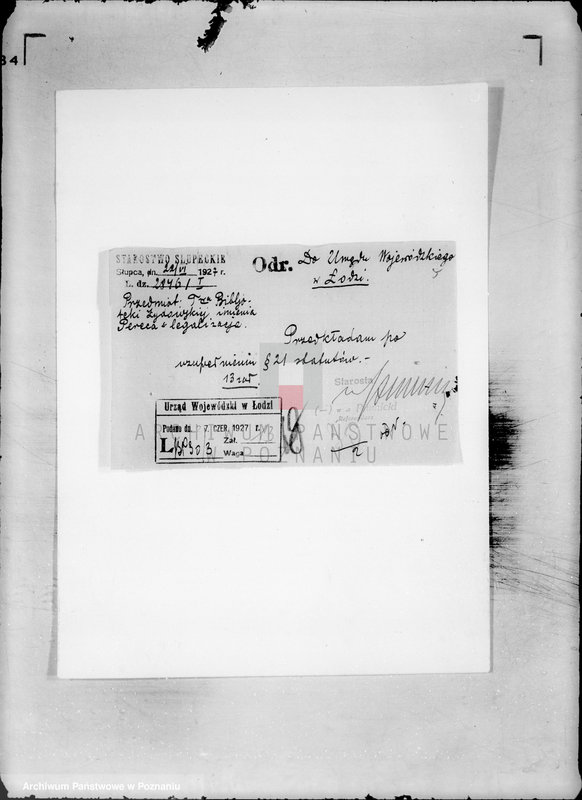 34
STAROSTWO SŁUPECKIE
Słupca, dn. 22/VI 1927 r.
L. dz. 2976/I
Odr. Do Urzędu Wojewódzkiego
w Łodzi.
Przedmiot. Twa Biblio-
teki Żydowskiej imienia
Pereca - legalizacja.
Przedkładam po
uzupełnieniu § 21 statutów.-
13 zał
Starosta
Urząd Wojewódzki w Łodzi
Podano dn. 7. CZER. 1927 r.
L Zał.
Waga
18
ARCHIWUM PAŃSTWOWE
W POZNANIU
Archiwum Państwowe w Poznaniu